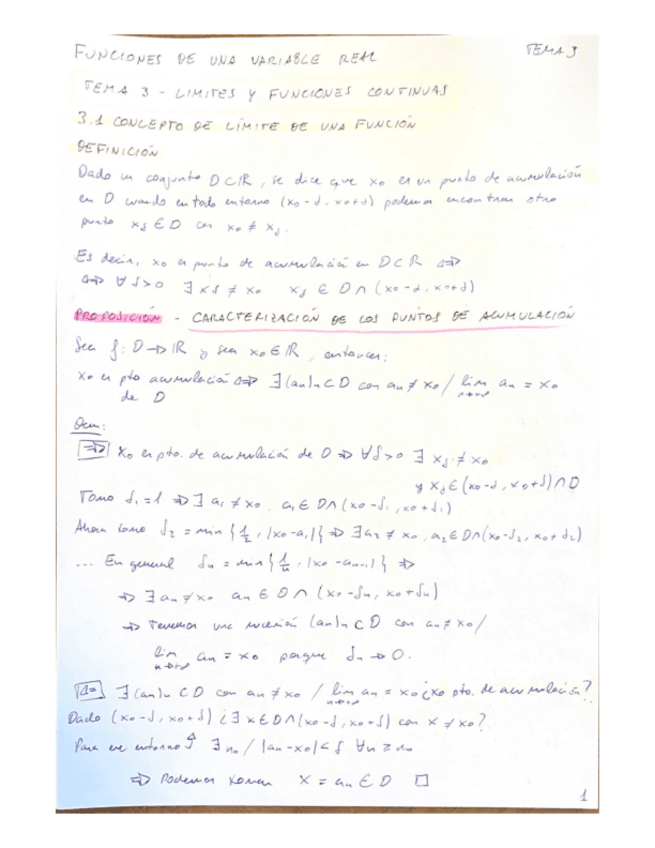 FUNCIONES DE UNA VARIABLE REAL TEMA 3
TEMA 3 - LIMITES Y FUNCIONES CONTINUAS
3.1 CONCEPTO DE LÍMITE DE UNA FUNCIÓN
DEFINICIÓN
Dado un conjunto D⊂ℝ, se dice que x₀ es un punto de acumulación
en D cuando en todo entorno (x₀-δ, x₀+δ) podemos encontrar otro
punto x_δ ∈ D con x₀ ≠ x_δ.
Es decir, x₀ es punto de acumulación en D⊂ℝ ⇔
⇔ ∀δ>0 ∃ x_δ ≠ x₀ x_δ ∈ D∩(x₀-δ, x₀+δ)
PROPOSICIÓN - CARACTERIZACIÓN DE LOS PUNTOS DE ACUMULACIÓN
Sea f: D→ℝ y sea x₀∈ℝ, entonces:
x₀ es pto acumulación ⇔ ∃(an)n⊂D con an≠x₀ / lim an = x₀
de D n→+∞
Dem:
⇒ x₀ es pto. de acumulación de D ⇒ ∀δ>0 ∃ x_δ ≠ x₀
y x_δ∈(x₀-δ, x₀+δ)∩D
Tomo δ₁=1 ⇒ ∃ a₁≠x₀, a₁∈D∩(x₀-δ₁, x₀+δ₁)
Ahora tomo δ₂ = min{1/2, |x₀-a₁|} ⇒ ∃a₂≠x₀, a₂∈D∩(x₀-δ₂, x₀+δ₂)
... En general δn = min{1/n, |x₀-an-1|} ⇒
⇒ ∃ an≠x₀ an∈D∩(x₀-δn, x₀+δn)
⇒ Tenemos una sucesión (an)n⊂D con an≠x₀/
lim an = x₀ porque δn→0.
n→+∞
⇐ ∃(an)n⊂D con an≠x₀ / lim an = x₀ ¿x₀ pto. de acumulación?
n→+∞
Dado (x₀-δ, x₀+δ) ¿∃ x∈D∩(x₀-δ, x₀+δ) con x≠x₀?
Para ese entorno ∃n₀ / |an-x₀|<δ ∀n≥n₀
⇒ Podemos tomar x = an∈D □
1